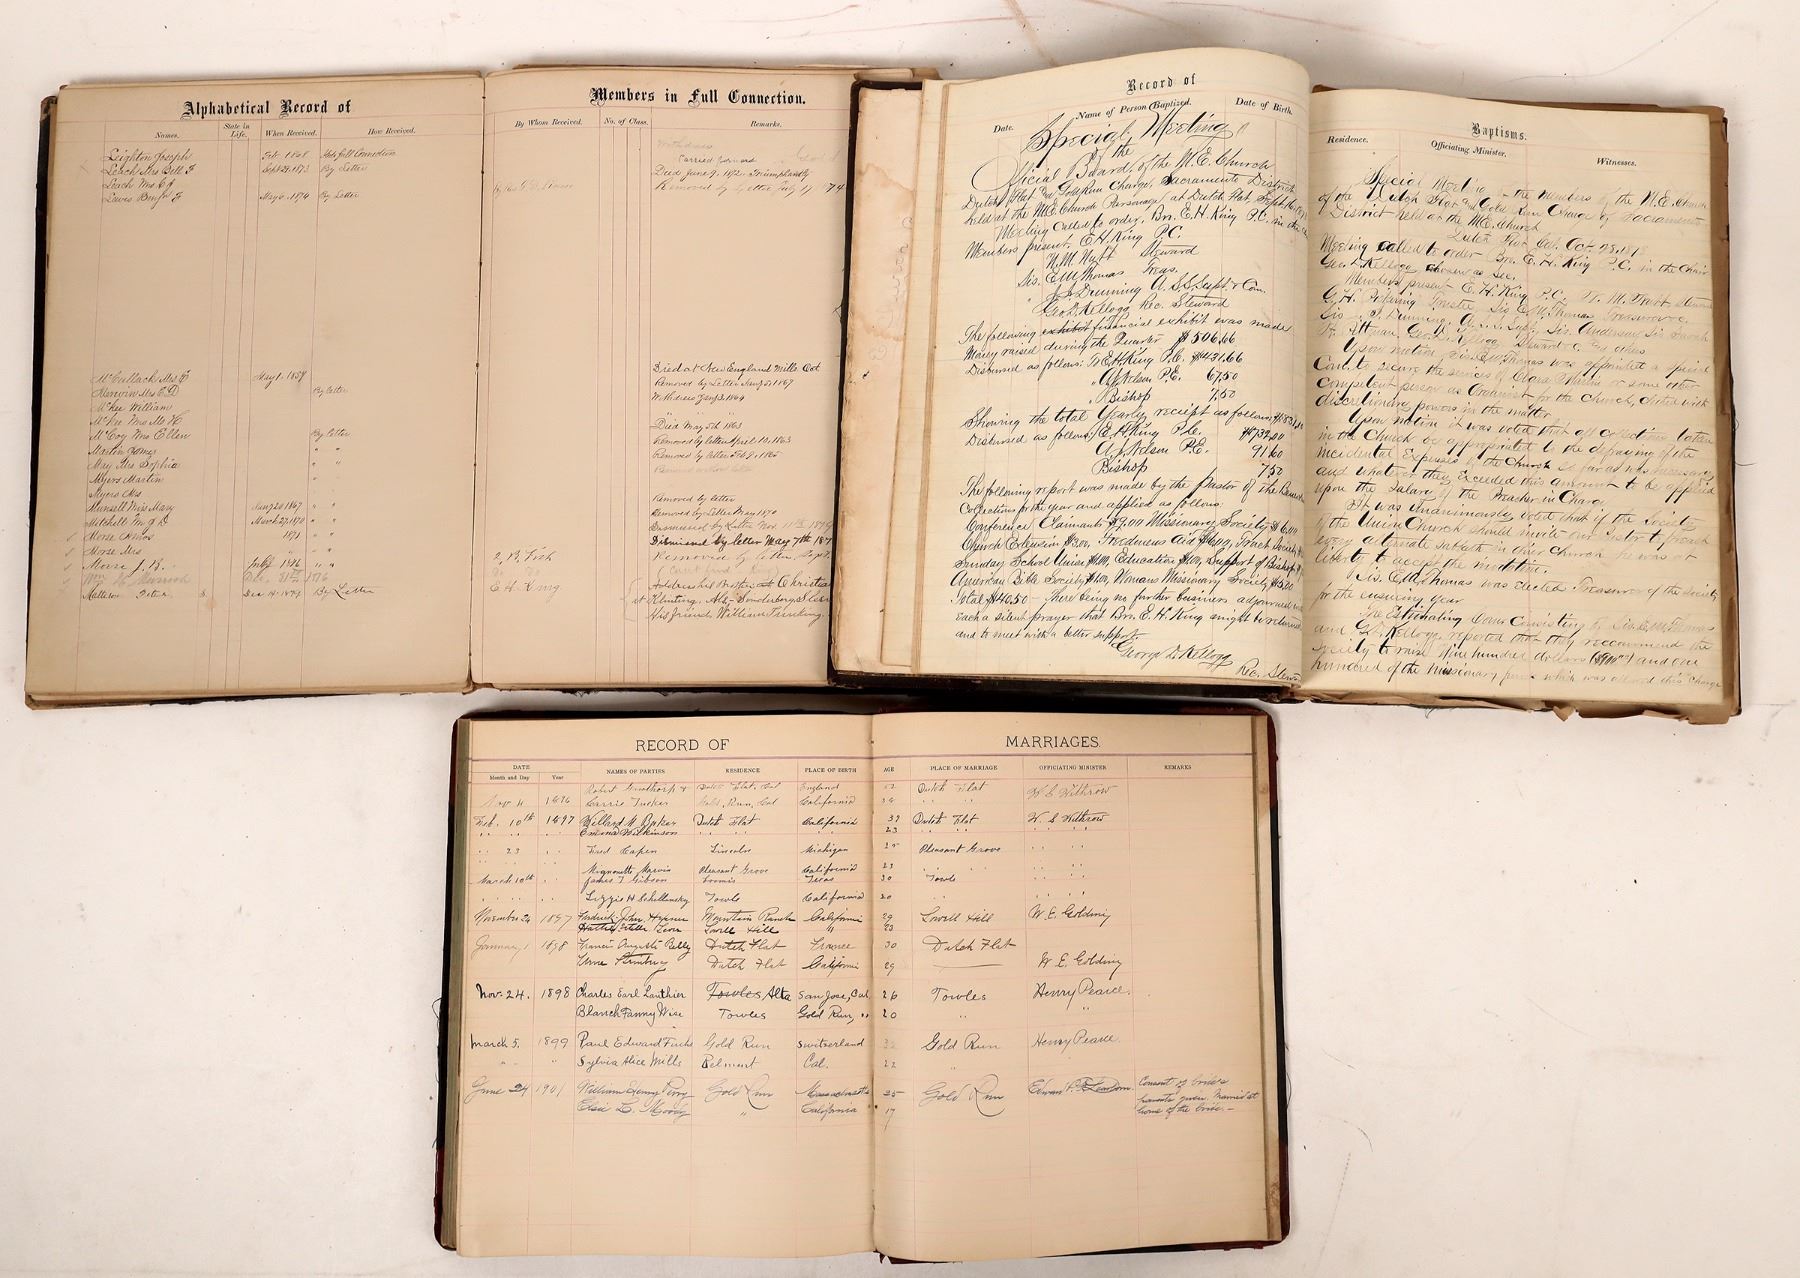 Alphabetical Record of
Names. State in Life. When Received. How Received.
Leighton Joseph Feb. 1868
Leach Mrs Bell F Sept 29, 1873 By Letter
Leach Mrs C J
Lewis Benj F May 6, 1874 By Letter
McCullach Mrs E May 1, 1859
Merwin Mrs C D By letter
McKee William
McKee Mrs M H
McCoy Mrs Ellen By letter
Martin James " "
May Mrs Sophia " "
Myers Martin
Myers Mrs
Munsell Miss Mary 1867 " "
Mitchell Mr J D March 27, 1870 " "
Morse 1871 " "
Morse Mrs
Moore J. R. July 1876 " "
Wm H. Dec. 31st 1876
Matteson Peter S Dec 14, 1879 By Letter
Members in Full Connection.
By Whom Received. No. of Class. Remarks.
Withdrawn
Carried forward
Died June 9, 1872. Triumphantly
Removed by Letter July 14 1874
Died at New England Mills Cal
Removed by Letter Aug 5, 1867
Withdrew Jan 3, 1864
" "
Died May 5th 1863
Removed by letter April 10, 1863
Removed by letter Feb 9, 1865
Removed without letter
Removed by letter
Removed by Letter May 1870
Dismissed by Letter Nov. 11th 1879
Dismissed by letter May 7th 187
Removed by letter, Sept
E H. King Holders his
at Klinting, Als-Sonderborg,
His friend, William
Record of
Date. Name of Person Baptized. Date of Birth.
Special Meeting
of the
Official Board, of the M. E. Church
Dutch Flat and Gold Run Charge, Sacramento District
held at the M.E. Church Parsonage at Dutch Flat Sept
Meeting called to order, Bro. E. H. King P.C. in the
Members present, E. H. King P.C.
N. M. Nutt Steward
Sis. E W Thomas Treas.
" J. J. Dunning A. S. S. Supt & Com.
Geo D. Kellogg Rec. Steward
The following exhibit financial exhibit was made
Money raised during the Quarter $506.66
Disbursed as follows. To E H. King P.C. $431.66
" A. J. Nelson P.E. 67.50
" Bishop 7.50
Showing the total Yearly receipt as follows
Disbursed as follows, E. H. King P.C. $732.00
A. J. Nelson P.E. 91.60
Bishop 7.50
The following report was made by the Pastor of the
Collections for the year and applied as follows:
Conference Claimants $9.00 Missionary Society $16.00
Church Extension $3.00, Freedmens aid $2.00, Tract Society
Sunday School Union $1.00, Education $1.00, Support of Bishop
American Bible Society $1.00, Womans Missionary Society $5.00
Total $40.50 - There being no further business adjourned
Each a silent prayer that Bro. E. H. King might be returned
and to meet with a better support.
George D. Kellogg
Rec. Stew
Baptisms.
Residence. Officiating Minister. Witnesses.
Special Meeting of the members of the M.E. Church
of the Dutch Flat and Gold Run Charge of Sacramento
District held at the M.E. Church
Dutch Flat Cal. Oct 28, 187
Meeting called to order Bro. E. H. King P.C. in the Chair
Geo. D. Kellogg chosen as Sec.
Members present E. H. King P.C. N. M. Nutt Steward
G. H. Pickering Trustee Sis E. W. Thomas Treasurer
Sis. J. Dunning A. S. S. Supt, Sis. Anderson Sis
Geo. D. Kellogg Steward & others
Upon motion, Sis. E. W. Thomas was appointed a special
Com. to secure the services of Clara Martin or some other
competent person as Organist for the Church, clothed with
discretionary powers in the matter.
Upon motion it was voted that all collections taken
in the Church be appropriated to the defraying of the
incidental Expenses of the Church so far as was necessary
and whatever they exceeded this amount to be applied
upon the Salary of the Preacher in Charge
It was Unanimously voted that if the Society
of the Union Church should invite our Pastor to preach
every alternate sabbath in their Church he was at
liberty to accept the invitation.
Sis. E W Thomas was elected Treasurer of the Society
for the ensuing year
The Estimating Com. consisting of Sis. E. W. Thomas
and G. D. Kellogg, reported that they reccommend the
society to raise Nine hundred dollars ($900.00) and one
hundred of the Missionary which was allowed this Charge
RECORD OF MARRIAGES
DATE NAMES OF PARTIES RESIDENCE PLACE OF BIRTH AGE PLACE OF MARRIAGE OFFICIATING MINISTER REMARKS
Month and Day Year
Robert & Dutch Flat, Cal England 52 Dutch Flat W S Withrow
Nov 4 1896 Carrie Tucker Gold Run, Cal California 34 " "
Feb. 10th 1897 Willard M. Baker Dutch Flat California 39 Dutch Flat W. S Withrow
" " " Emma Wilkinson " " " 23 " "
" 23 " Fred Capen Lincoln Michigan 25 Pleasant Grove " "
Mignonette Marvin Pleasant Grove California 23 " "
March 10th " James T Gibson Loomis Texas 30 Towle " "
" " Lizzie H Schillansky Towle California 20 " "
November 24 1897 John Lowell Hill W. E. Golding
Mountain Ranch California 29
Hattie Estelle Lowell Hill " 23
January 1 1898 Francis August Dutch Flat France 30 Dutch Flat
Dutch Flat California 29 W. E. Golding
Nov. 24. 1898 Charles Earl Lauthier Towles Alta San Jose, Cal 26 Towles Henry Pearce.
Blanch Fanny Wise Towles Gold Run, " 20 " "
March 5. 1899 Paul Edward Fuchs Gold Run Switzerland 32 Gold Run Henry Pearce.
" " Sylvia Alice Mills Belmont Cal. 22 "
June 24 1901 William Henry Perry Gold Run Massachusetts 25 Gold Run Consent of bride's
Elsie L. Moody " California 17 parents given. Married at
home of the bride.-